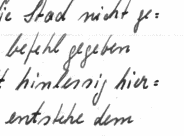 die Stad nicht ge=
befehl gegeben
hinlessig hier=
entstehe dem